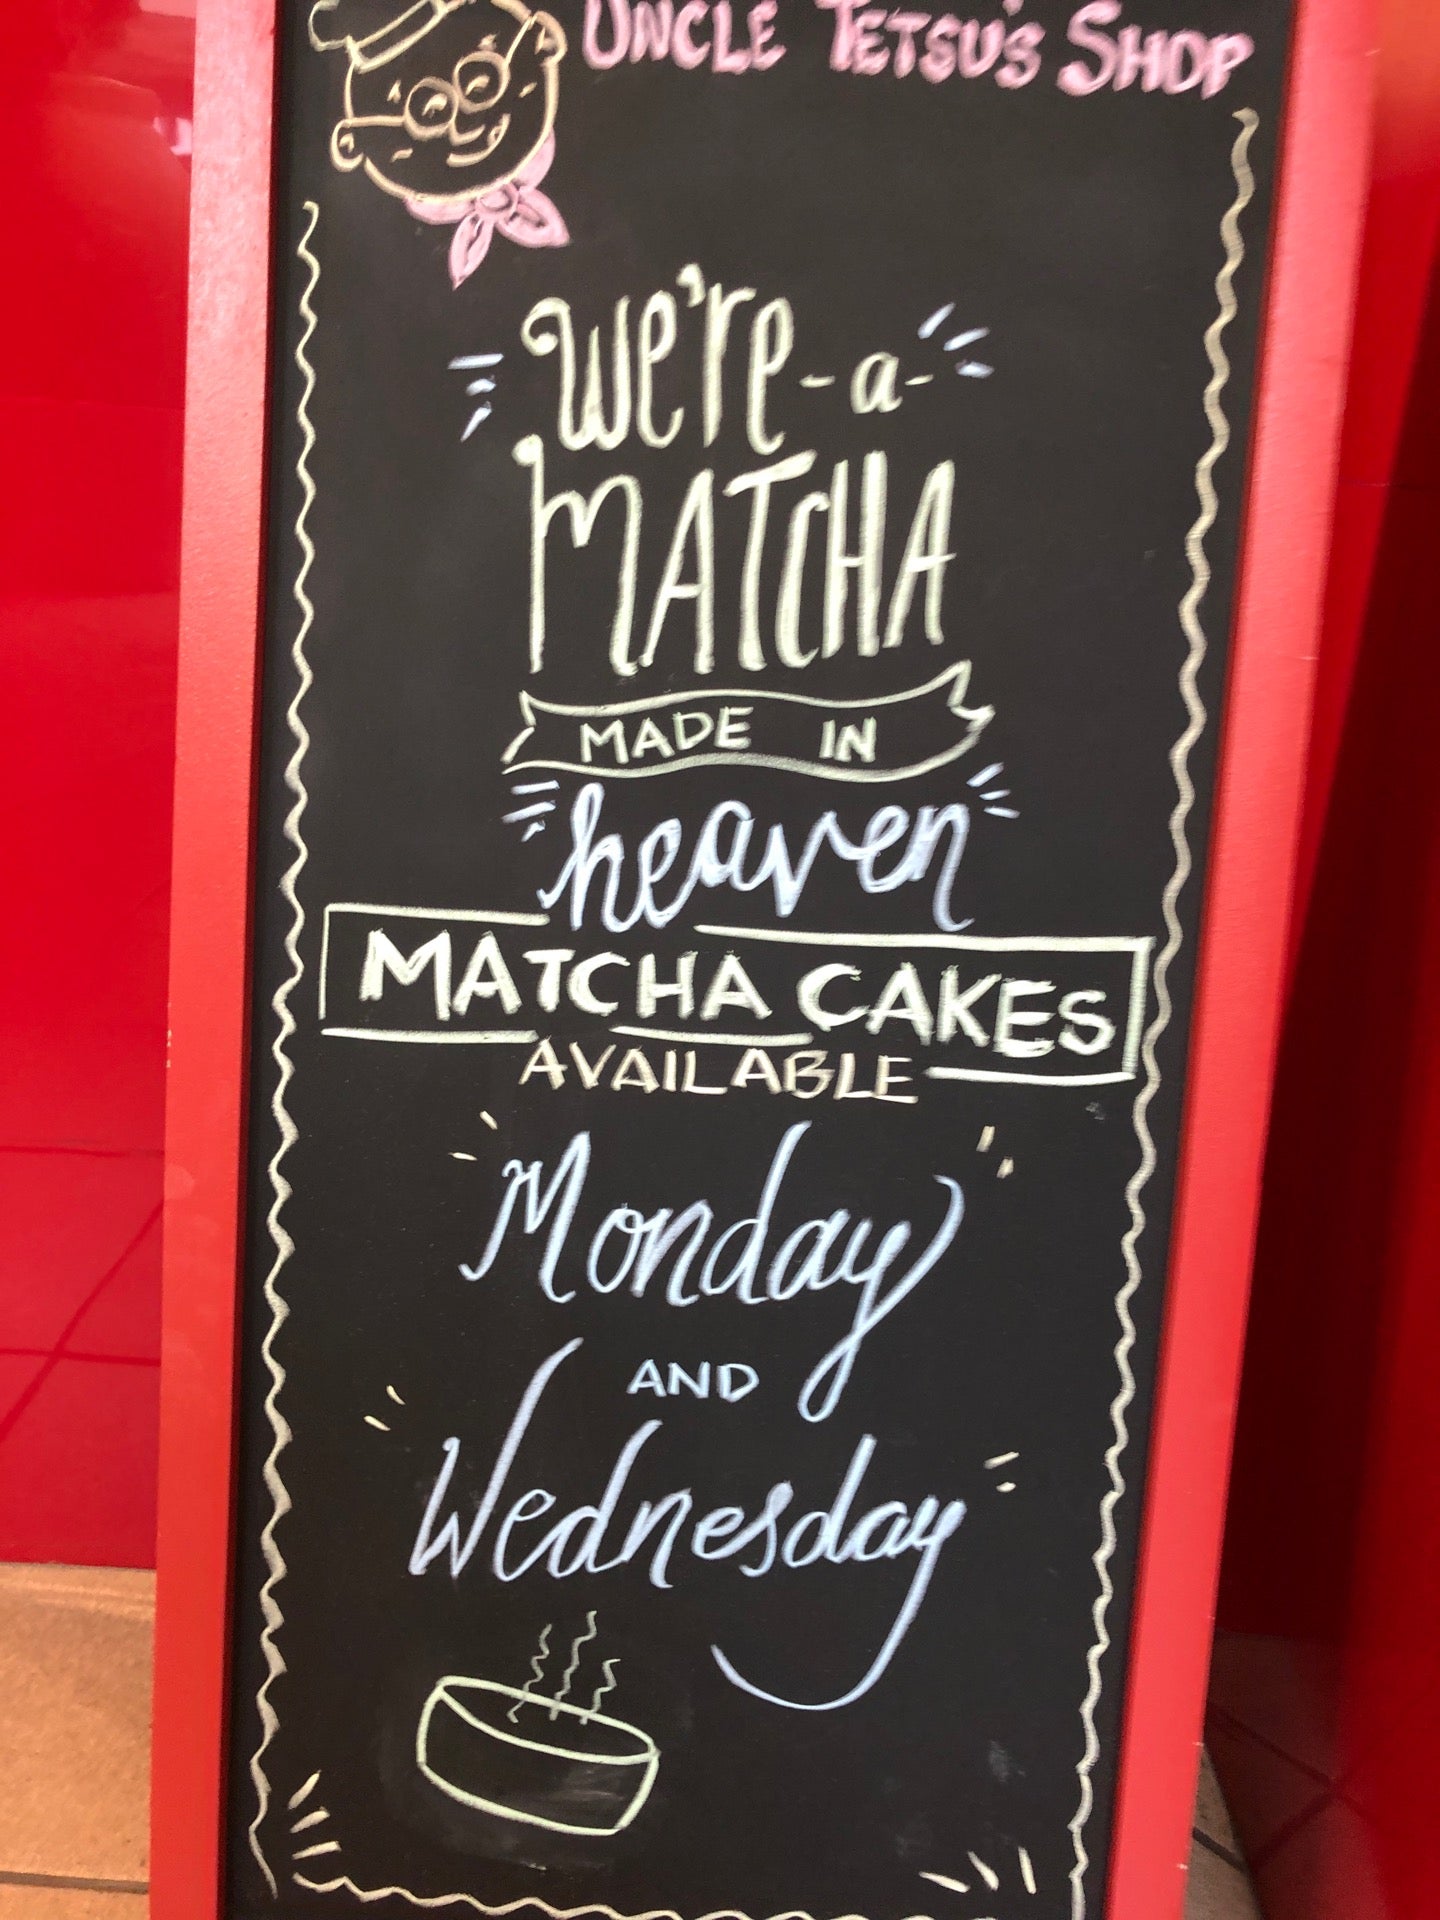 UNCLE TETSU'S SHOP
we're-a-
MATCHA
MADE IN
heaven
MATCHA CAKES
AVAILABLE
Monday
AND
Wednesday